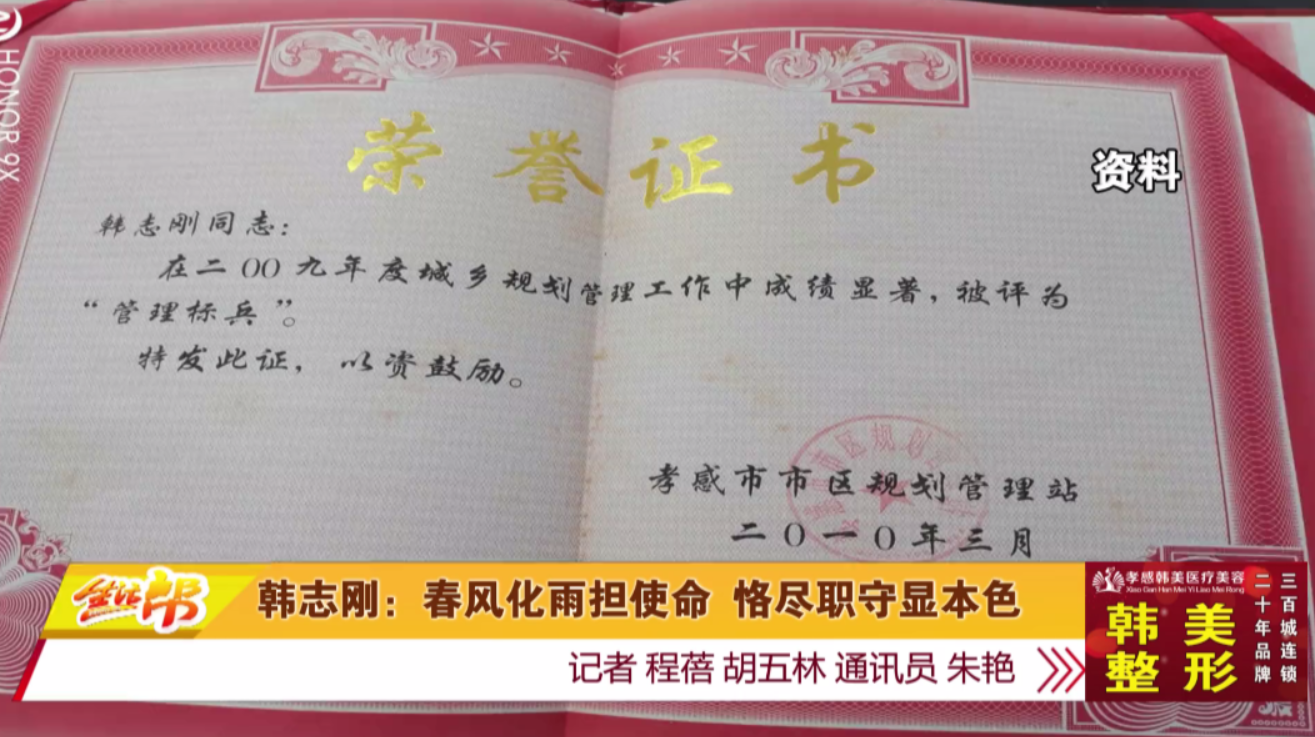 HONOR 9X
荣誉证书
资料
韩志刚同志：
在二00九年度城乡规划管理工作中成绩显著，被评为
“管理标兵”。
特发此证，以资鼓励。
孝感市市区规划管理站
二0一0年三月
帮
韩志刚：春风化雨担使命 恪尽职守显本色
记者 程蓓 胡五林 通讯员 朱艳
孝感韩美医疗美容
Xiao Gan Han Mei Yi Liao Mei Rong
韩美
整形
二十年品牌
三百城连锁